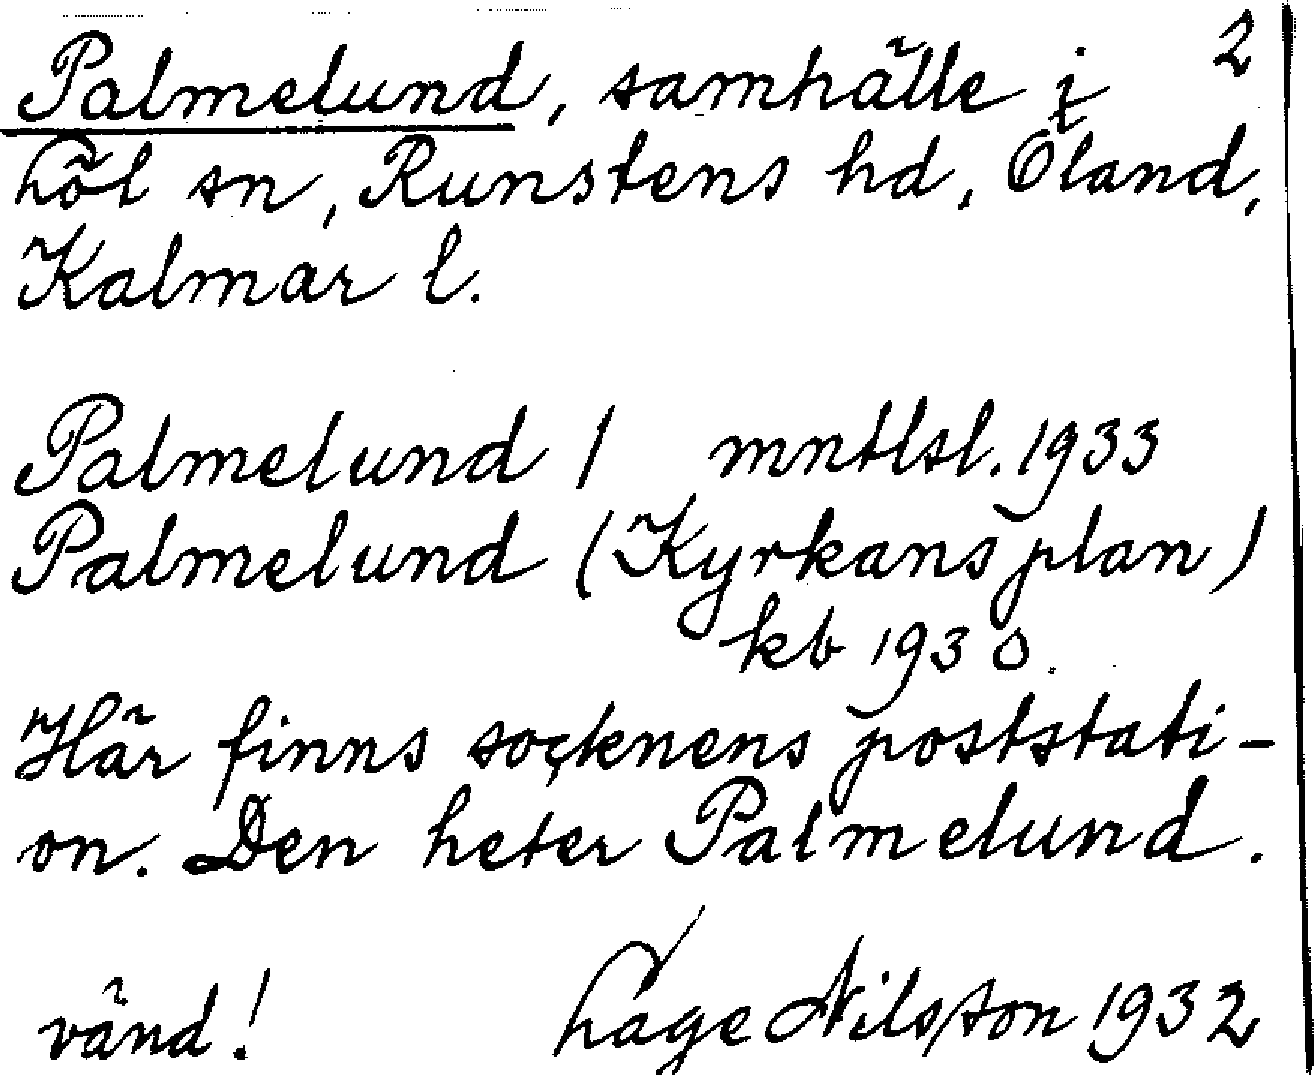 2
Palmelund, samhälle i
höl sn, Runstens hd, Öland,
Kalmar l.
Palmelund / mntlsl. 1933
Palmelund (Kyrkans plan)
kb 1930.
Här finns socknens poststati-
on. Den heter Palmelund.
vänd! håge Nilsson 1932